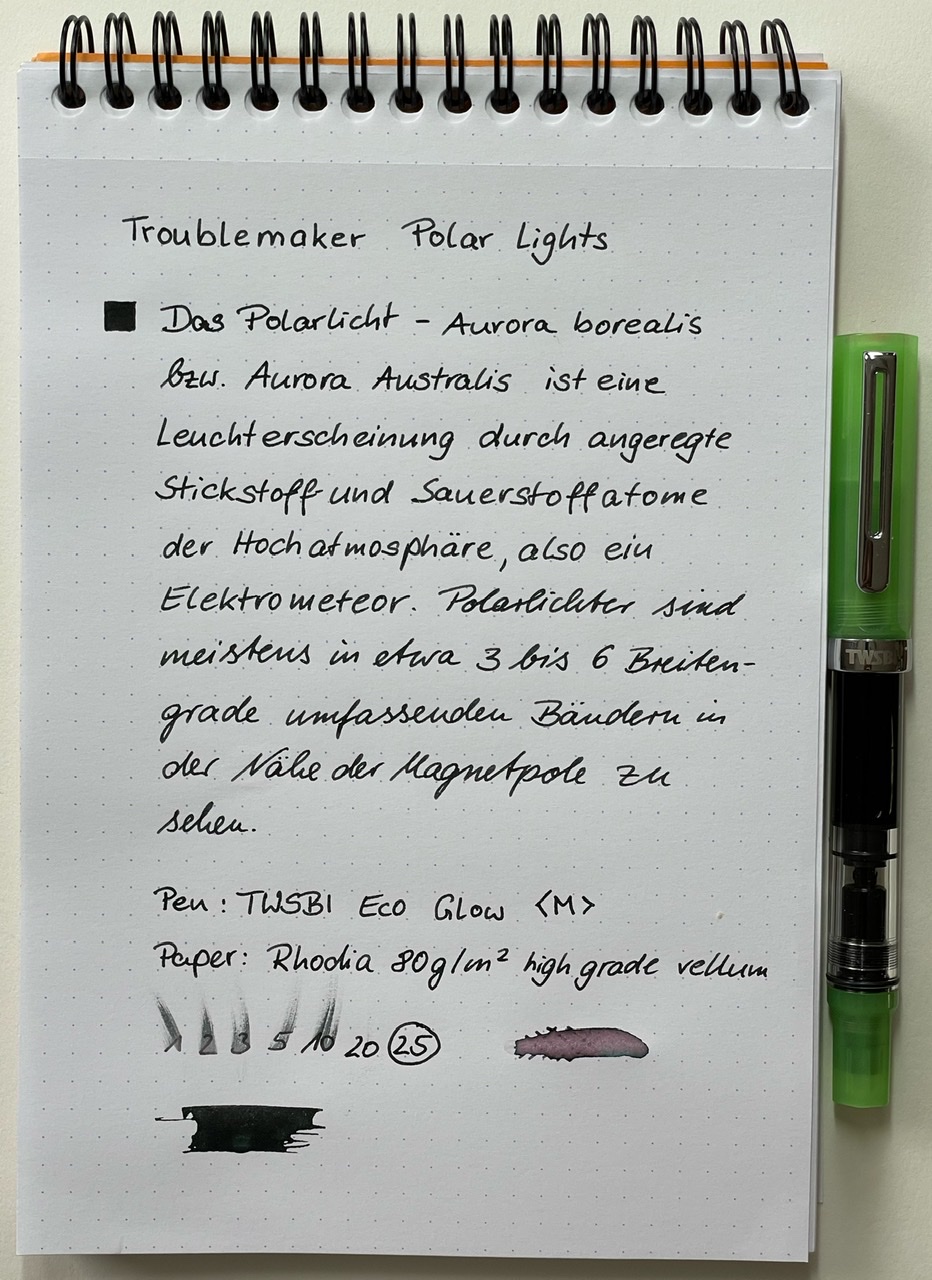 Troublemaker Polar Lights
Das Polarlicht - Aurora borealis
bzw. Aurora Australis ist eine
Leuchterscheinung durch angeregte
Stickstoff-und Sauerstoffatome
der Hochatmosphäre, also ein
Elektrometeor. Polarlichter sind
meistens in etwa 3 bis 6 Breiten-
grade umfassenden Bändern in
der Nähe der Magnetpole zu
sehen.
Pen: TWSBI Eco Glow <M>
Paper: Rhodia 80g/m² high grade vellum
1 2 3 5 10 20 25
TWSBI